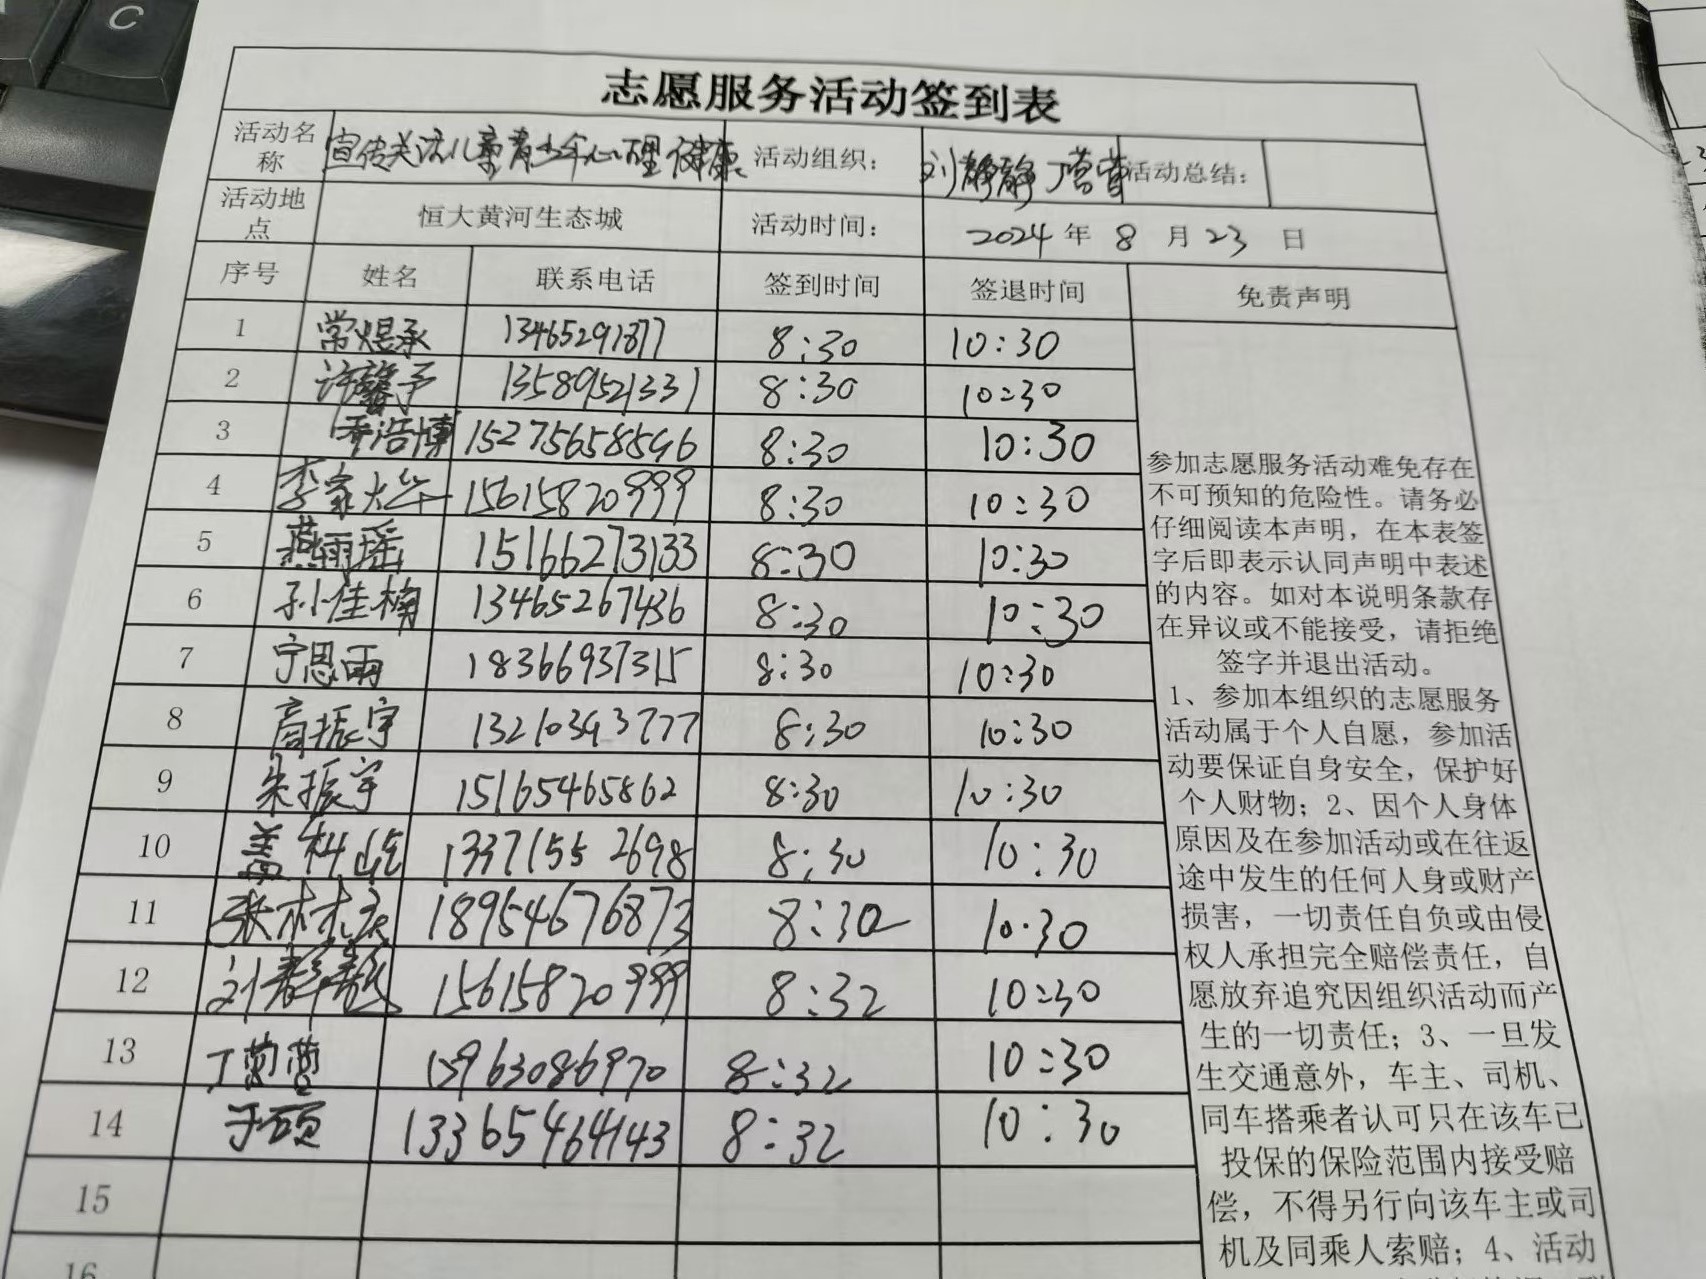 C
志愿服务活动签到表
活动名称 宣传关注儿童青少年心理健康 活动组织： 刘静静 丁莹莹 活动总结：
活动地点 恒大黄河生态城 活动时间： 2024 年 8 月 23 日
序号 姓名 联系电话 签到时间 签退时间 免责声明
1 常煜承 13465291877 8:30 10:30
2 许馨予 13589521331 8:30 10:30
3 乔浩博 15275658596 8:30 10:30
4 李家烨 15615820999 8:30 10:30
5 燕翊瑶 15166273133 8:30 10:30
6 孙佳楠 13465267436 8:30 10:30
7 宁思雨 18366937315 8:30 10:30
8 高振宇 13210343777 8:30 10:30
9 朱振宇 15165465862 8:30 10:30
10 盖 13371552698 8:30 10:30
11 张 18954676873 8:30 10:30
12 刘静静 15615820999 8:32 10:30
13 丁莹莹 15963086970 8:32 10:30
14 于硕 13365464143 8:32 10:30
15
16
参加志愿服务活动难免存在
不可预知的危险性。请务必
仔细阅读本声明，在本表签
字后即表示认同声明中表述
的内容。如对本说明条款存
在异议或不能接受，请拒绝
签字并退出活动。
1、参加本组织的志愿服务
活动属于个人自愿，参加活
动要保证自身安全，保护好
个人财物；2、因个人身体
原因及在参加活动或在往返
途中发生的任何人身或财产
损害，一切责任自负或由侵
权人承担完全赔偿责任，自
愿放弃追究因组织活动而产
生的一切责任；3、一旦发
生交通意外，车主、司机、
同车搭乘者认可只在该车已
投保的保险范围内接受赔
偿，不得另行向该车主或司
机及同乘人索赔；4、活动